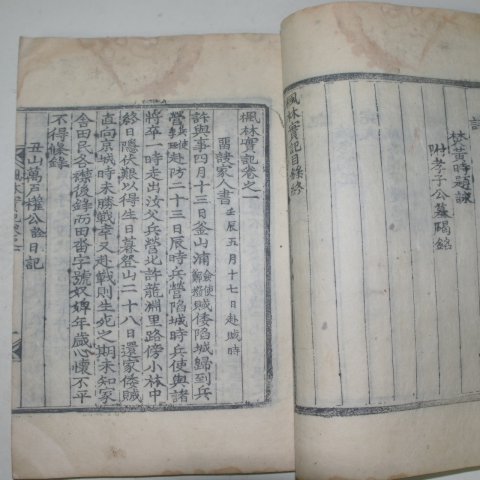 焚黃時題詠
附孝子公墓碣銘
楓林實記目錄終
楓林實記卷之一
留諼家人書 壬辰五月十七日赴賊時
許與事四月十三日釜山浦僉使鄭撥賊倭陷城歸到兵
營兵使赴防二十三日辰時兵營陷城時兵使與諸
將卒一時走出汝父兵營北許龍淵里路傍小林中
終日隱伏艱以得生日暮登山二十八日還家倭賊
直向京城時未勝戰幸又赴戰則生死之期未知家
舍田民各衿後錄而田畓字號奴婢年歲心懷不平
不得條錄
丑山萬戶權公詮日記